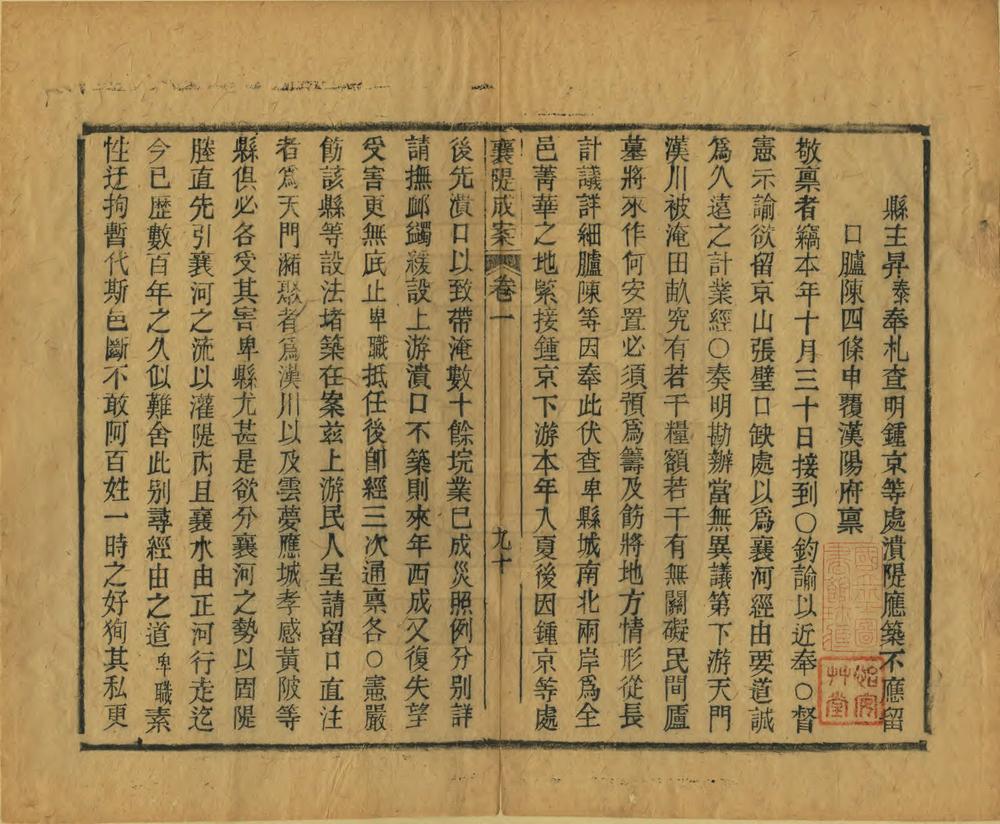 縣主昇泰奉札查明鍾京等處潰隄應築不應留
口臚陳四條申覆漢陽府稟
敬稟者竊本年十月三十日接到〇鈞諭以近奉〇督
憲示諭欲留京山張壁口缺處以爲襄河經由要道誠
爲久遠之計業經〇奏明勘辦當無異議第下游天門
漢川被淹田畝究有若干糧額若干有無關礙民間廬
墓將來作何安置必須預爲籌及飭將地方情形從長
計議詳細臚陳等因奉此伏查卑縣城南北兩岸爲全
邑菁華之地緊接鍾京下游本年入夏後因鍾京等處
襄隄成案 卷一 九十
後先潰口以致帶淹數十餘垸業已成災照例分別詳
請撫卹蠲緩設上游潰口不築則來年西成又復失望
受害更無底止卑職抵任後卽經三次通稟各〇憲嚴
飭該縣等設法堵築在案兹上游民人呈請留口直注
者爲天門瀦聚者爲漢川以及雲夢應城孝感黃陂等
縣俱必各受其害卑縣尤甚是欲分襄河之勢以固隄
塍直先引襄河之流以灌隄內且襄水由正河行走迄
今已歷數百年之久似難舍此別尋經由之道卑職素
性迂拘暫代斯邑斷不敢阿百姓一時之好狥其私更